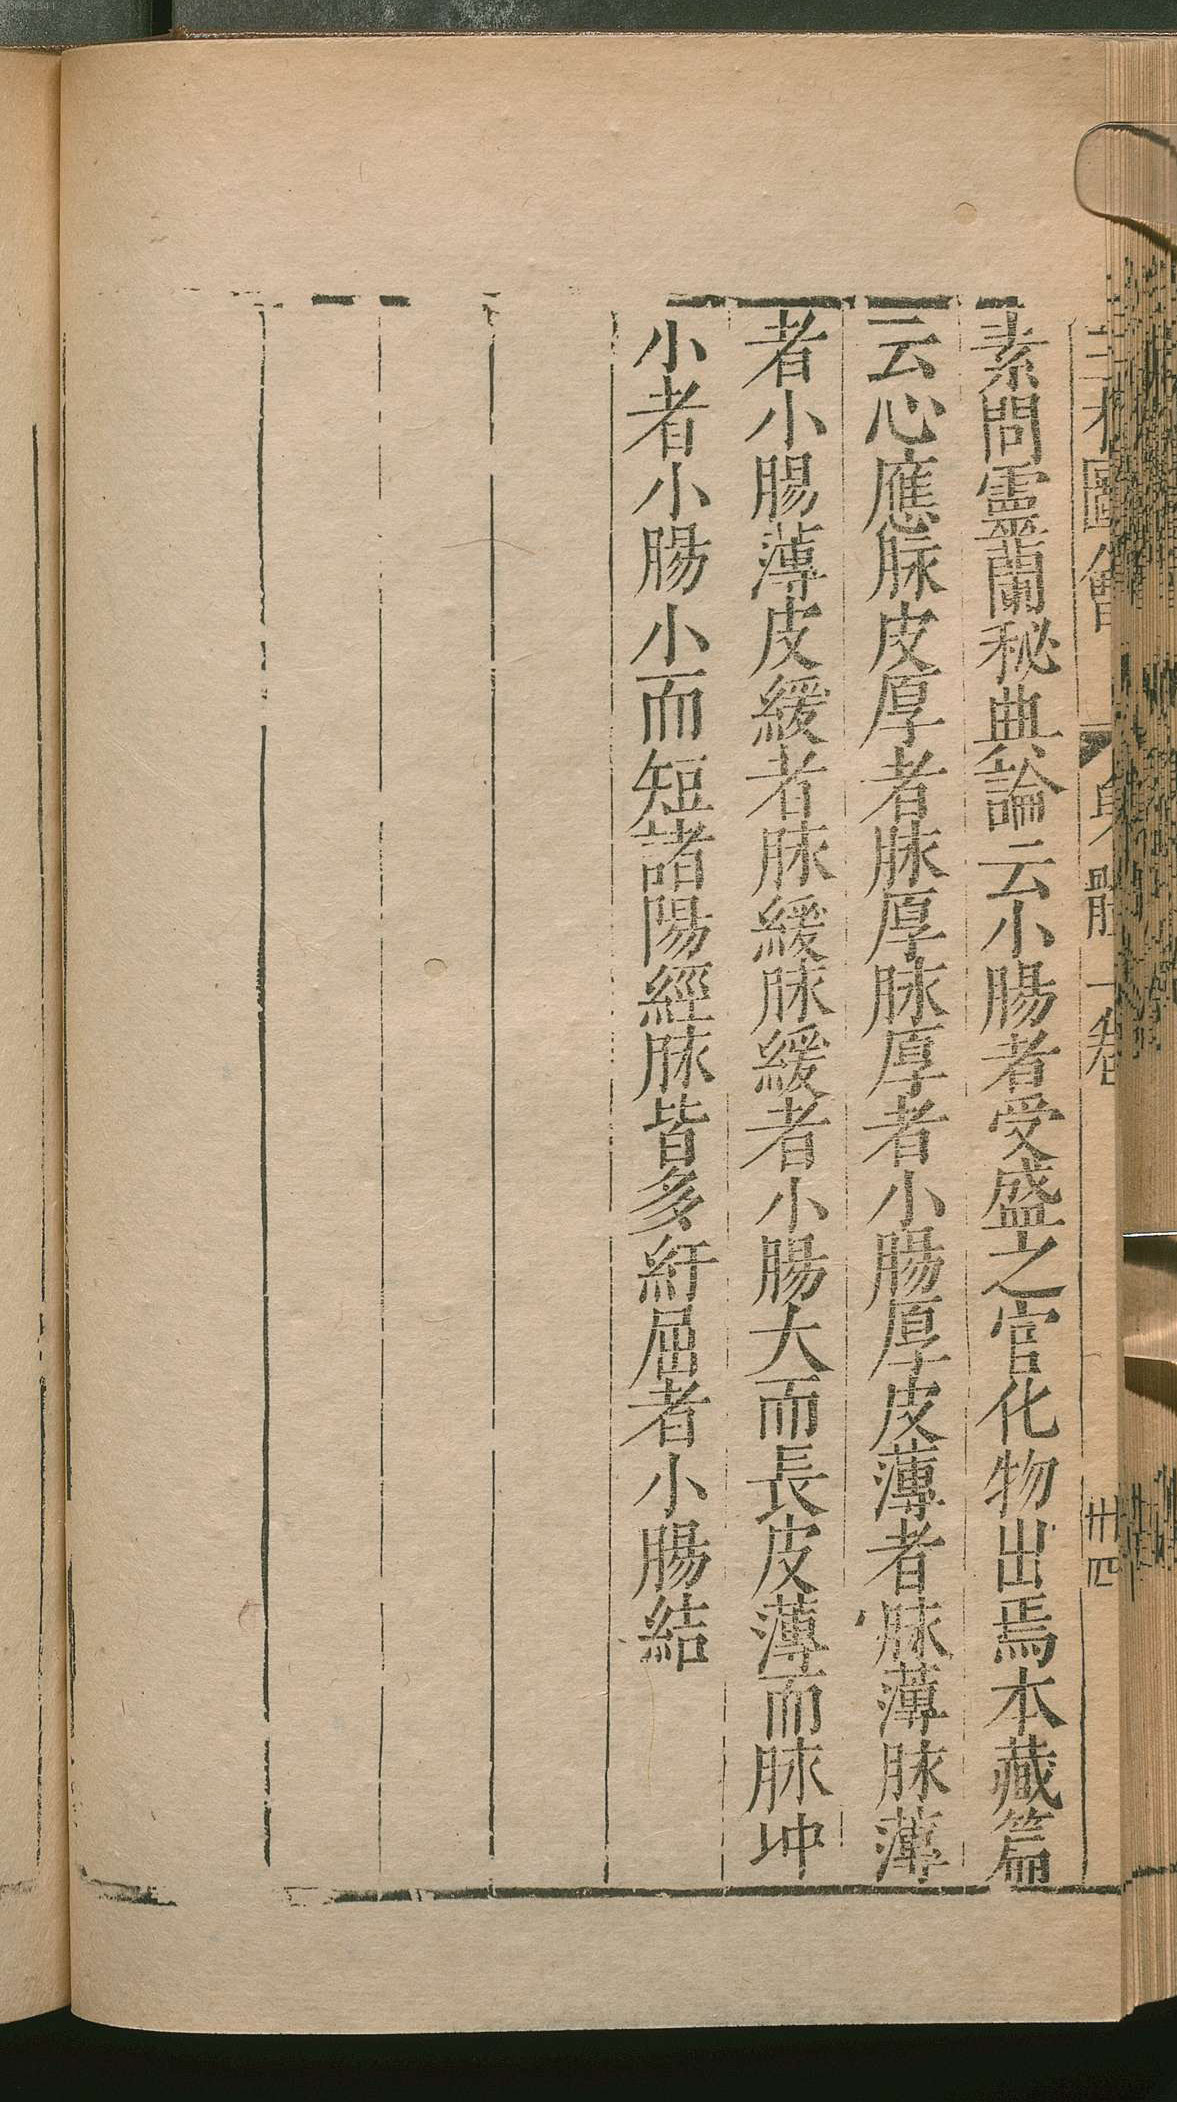 三才圖會 身體一卷 卅四
素問靈蘭秘典論云小腸者受盛之官化物出焉本藏篇
云心應脉皮厚者脉厚脉厚者小腸厚皮薄者脉薄脉薄
者小腸薄皮緩者脉緩脉緩者小腸大而長皮薄而脉冲
小者小腸小而短諸陽經脉皆多紆屈者小腸結